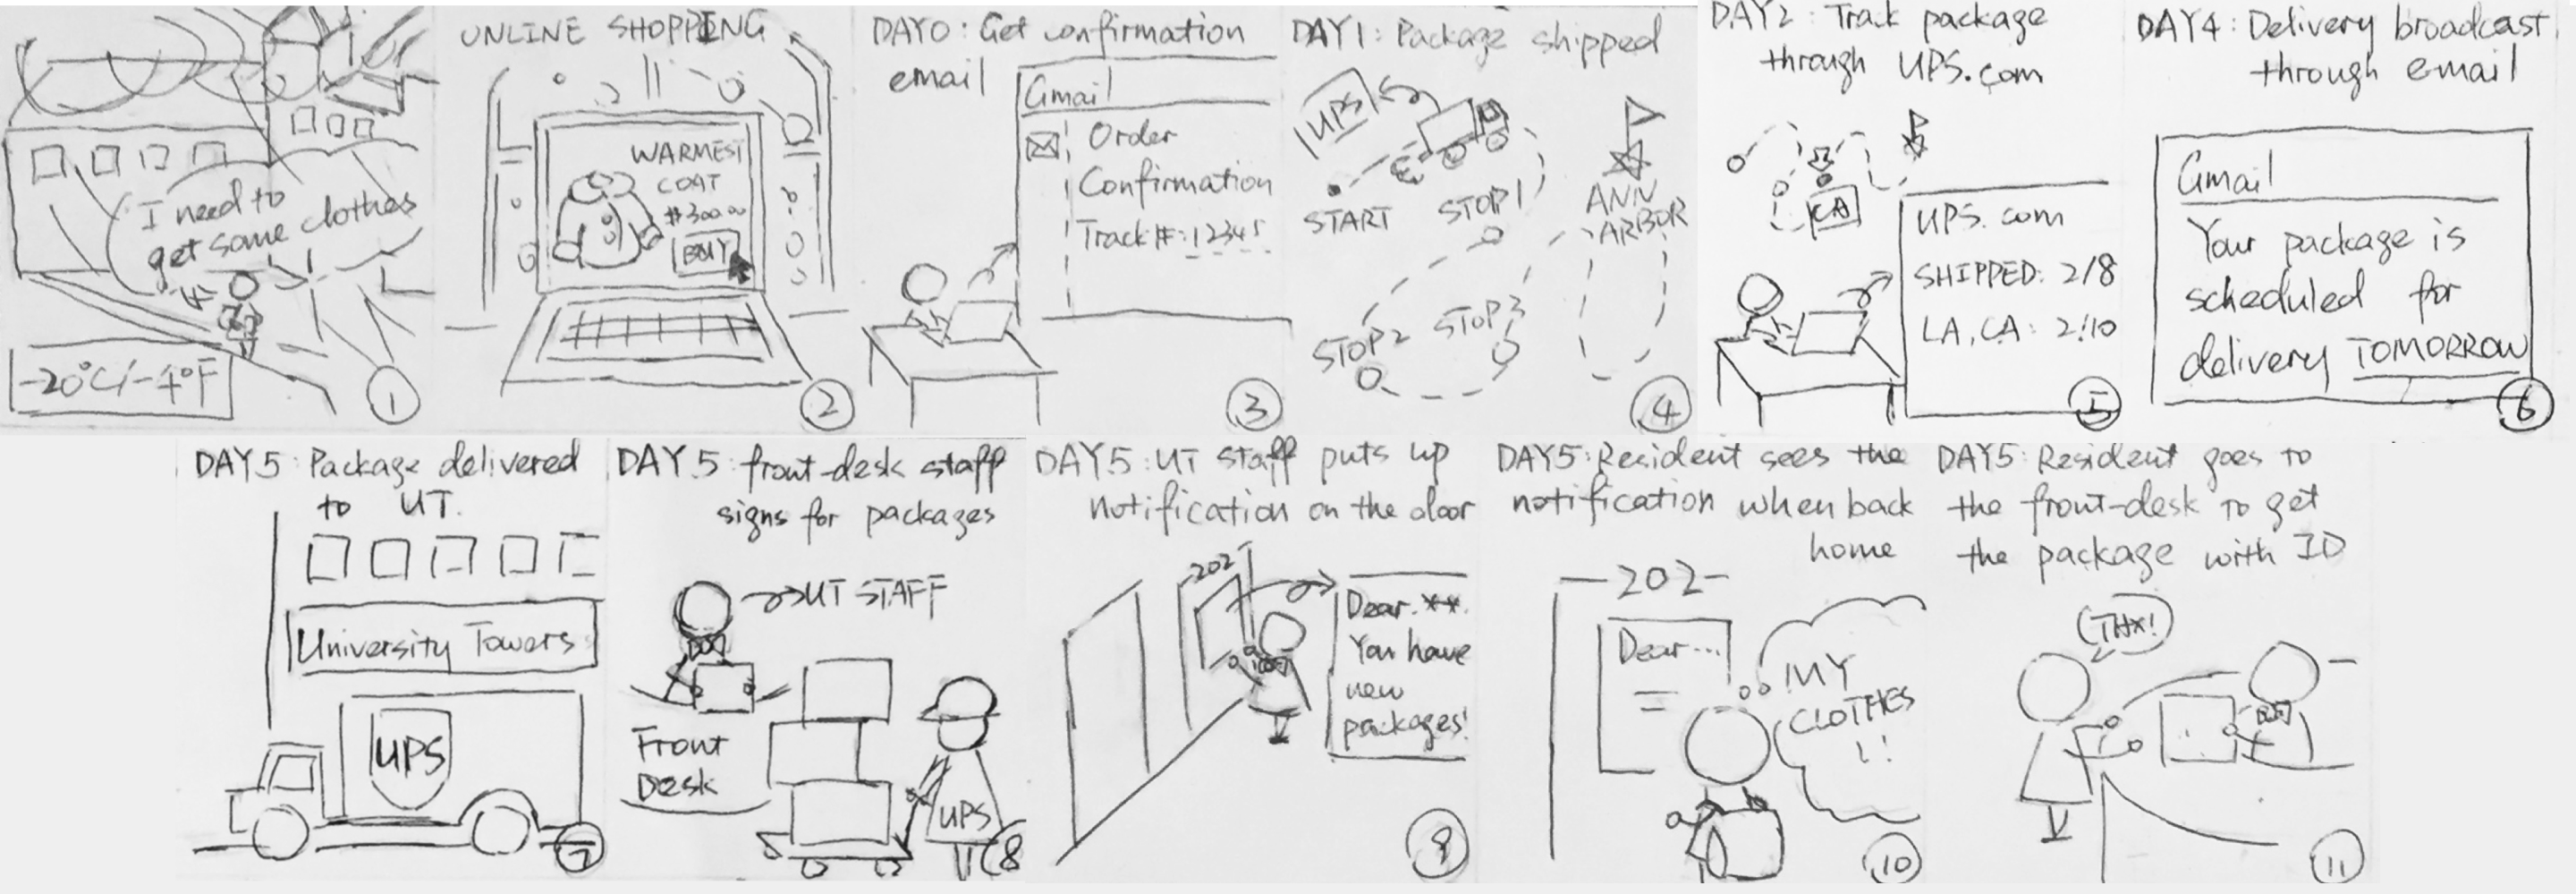 I need to
get some clothes
-20°C/-4°F
1
ONLINE SHOPPING
WARMEST
COAT
$300.00
BUY
2
DAY0: Get confirmation
email
Gmail
Order
Confirmation
Track#: 12345
3
DAY1: Package shipped
UPS
START
STOP1
ANN
ARBOR
STOP2
STOP3
4
DAY2: Track package
through UPS.com
CA
UPS.com
SHIPPED: 2/8
LA, CA: 2/10
5
DAY4: Delivery broadcast
through email
Gmail
Your package is
scheduled for
delivery TOMORROW
6
DAY5: Package delivered
to UT.
University Towers
UPS
7
DAY5: front-desk staff
signs for packages
UT STAFF
Front
Desk
UPS
8
DAY5: UT staff puts up
notification on the door
202
Dear **.
You have
new
packages!
9
DAY5: Resident sees the
notification when back
home
-202-
Dear...
MY
CLOTHES
!!
10
DAY5: Resident goes to
the front-desk to get
the package with ID
THX!
11